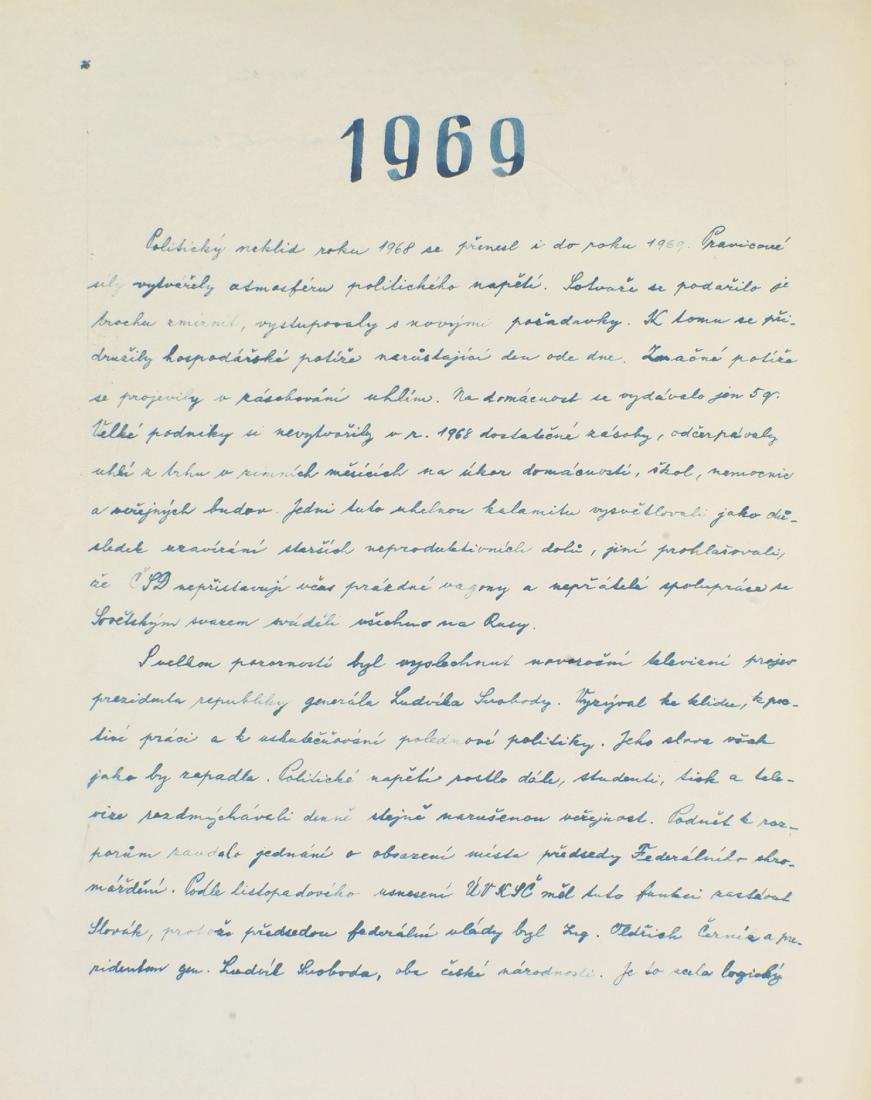 1969
Politický neklid roku 1968 se přenesl i do roku 1969. Pravicové
síly vytvářely atmosféru politického napětí. Sotvaže se podařilo je
trochu zmírnit, vystupovaly s novými požadavky. K tomu se při-
družily hospodářské potíže narůstající den ode dne. Značné potíže
se projevily v zásobování uhlím. Na domácnost se vydávalo jen 5 q.
Velké podniky si nevytvořily v r. 1968 dostatečné zásoby, odčerpávaly
uhlí z trhu v zimních měsících na úkor domácností, škol, nemocnic
a veřejných budov. Jedni tuto uhelnou kalamitu vysvětlovali jako dů-
sledek uzavírání starších neproduktivních dolů, jiní prohlašovali,
že ČSD nepřistavují včas prázdné vagony a nepřátelé spolupráce se
Sovětským svazem sváděli všechno na Rusy.
S velkou pozorností byl vyslechnut novoroční televizní projev
prezidenta republiky generála Ludvíka Svobody. Vyzýval ke klidu, k poc-
tivé práci a k uskutečňování polednové politiky. Jeho slova však
jako by zapadla. Politické napětí rostlo dále, studenti, tisk a tele-
vize rozdmýchávali denně stejně narušenou veřejnost. Podnět k roz-
porům zavdalo jednání o obsazení místa předsedy Federálního shro-
máždění. Podle listopadového usnesení ÚV KSČ měl tuto funkci zastávat
Slovák, protože předsedou federální vlády byl Ing. Oldřich Černík a pre-
zidentem gen. Ludvík Svoboda, oba české národnosti. Je to zcela logický